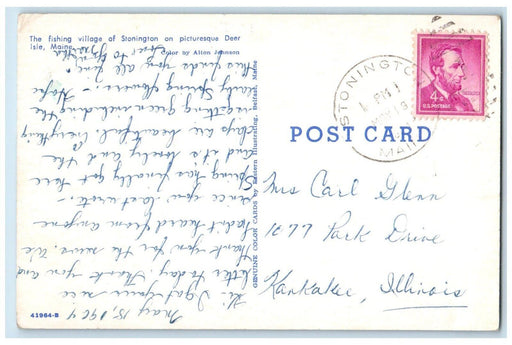 The fishing village of Stonington on picturesque Deer
Isle, Maine.
Color by Alton Johnson
May 15, 1964
Hi: I got your nice
letter to day. Thank you and
Thank you for the news. We
hadn't heard from anyone
since you last wrote -
Spring has finally got here
and it's lovely and the
days are beautiful. Everything
is getting green including the
early Spring flowers. - Hope
this finds you all fine.
Love to
41964-B
GENUINE COLOR CARDS by Eastern Illustrating, Belfast, Maine
STONINGTON
PM
4¢
U.S. POSTAGE
POST CARD
Mrs Carl Glenn
1077 Park Drive
Kankakee, Illinois